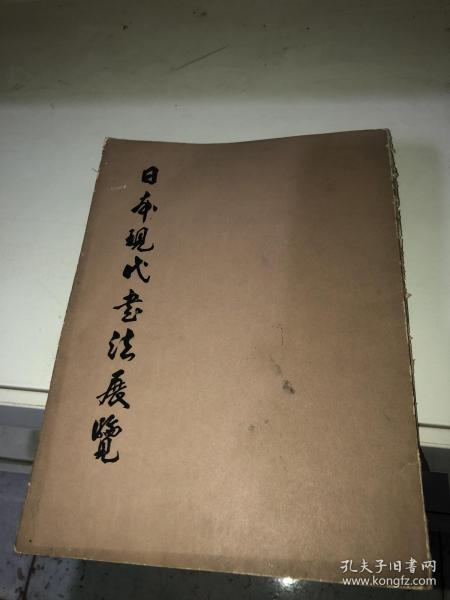 日本现代书法展覽
孔夫子旧书网
www.kongfz.com